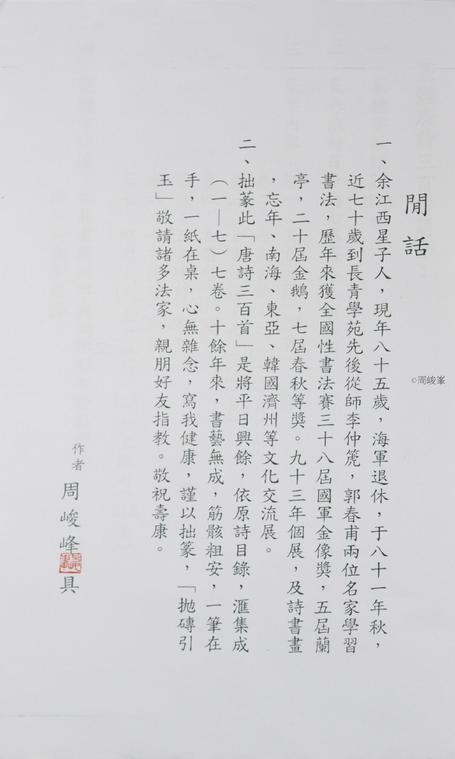 閒話
一、余江西星子人，現年八十五歲，海軍退休，于八十一年秋，
近七十歲到長青學苑先後從師李仲篪，郭春甫兩位名家學習
書法，歷年來獲全國性書法賽三十八屆國軍金像獎，五屆蘭
亭，二十屆金鵝，七屆春秋等獎。九十三年個展，及詩書畫
，忘年、南海、東亞、韓國濟州等文化交流展。
二、拙篆此「唐詩三百首」是將平日興餘，依原詩目錄，滙集成
（一—七）七卷。十餘年來，書藝無成，筋骸粗安，一筆在
手，一紙在桌，心無雜念，寫我健康，謹以拙篆，「抛磚引
玉」敬請諸多法家，親朋好友指教。敬祝壽康。
作者 周峻峰 具
©周峻峯